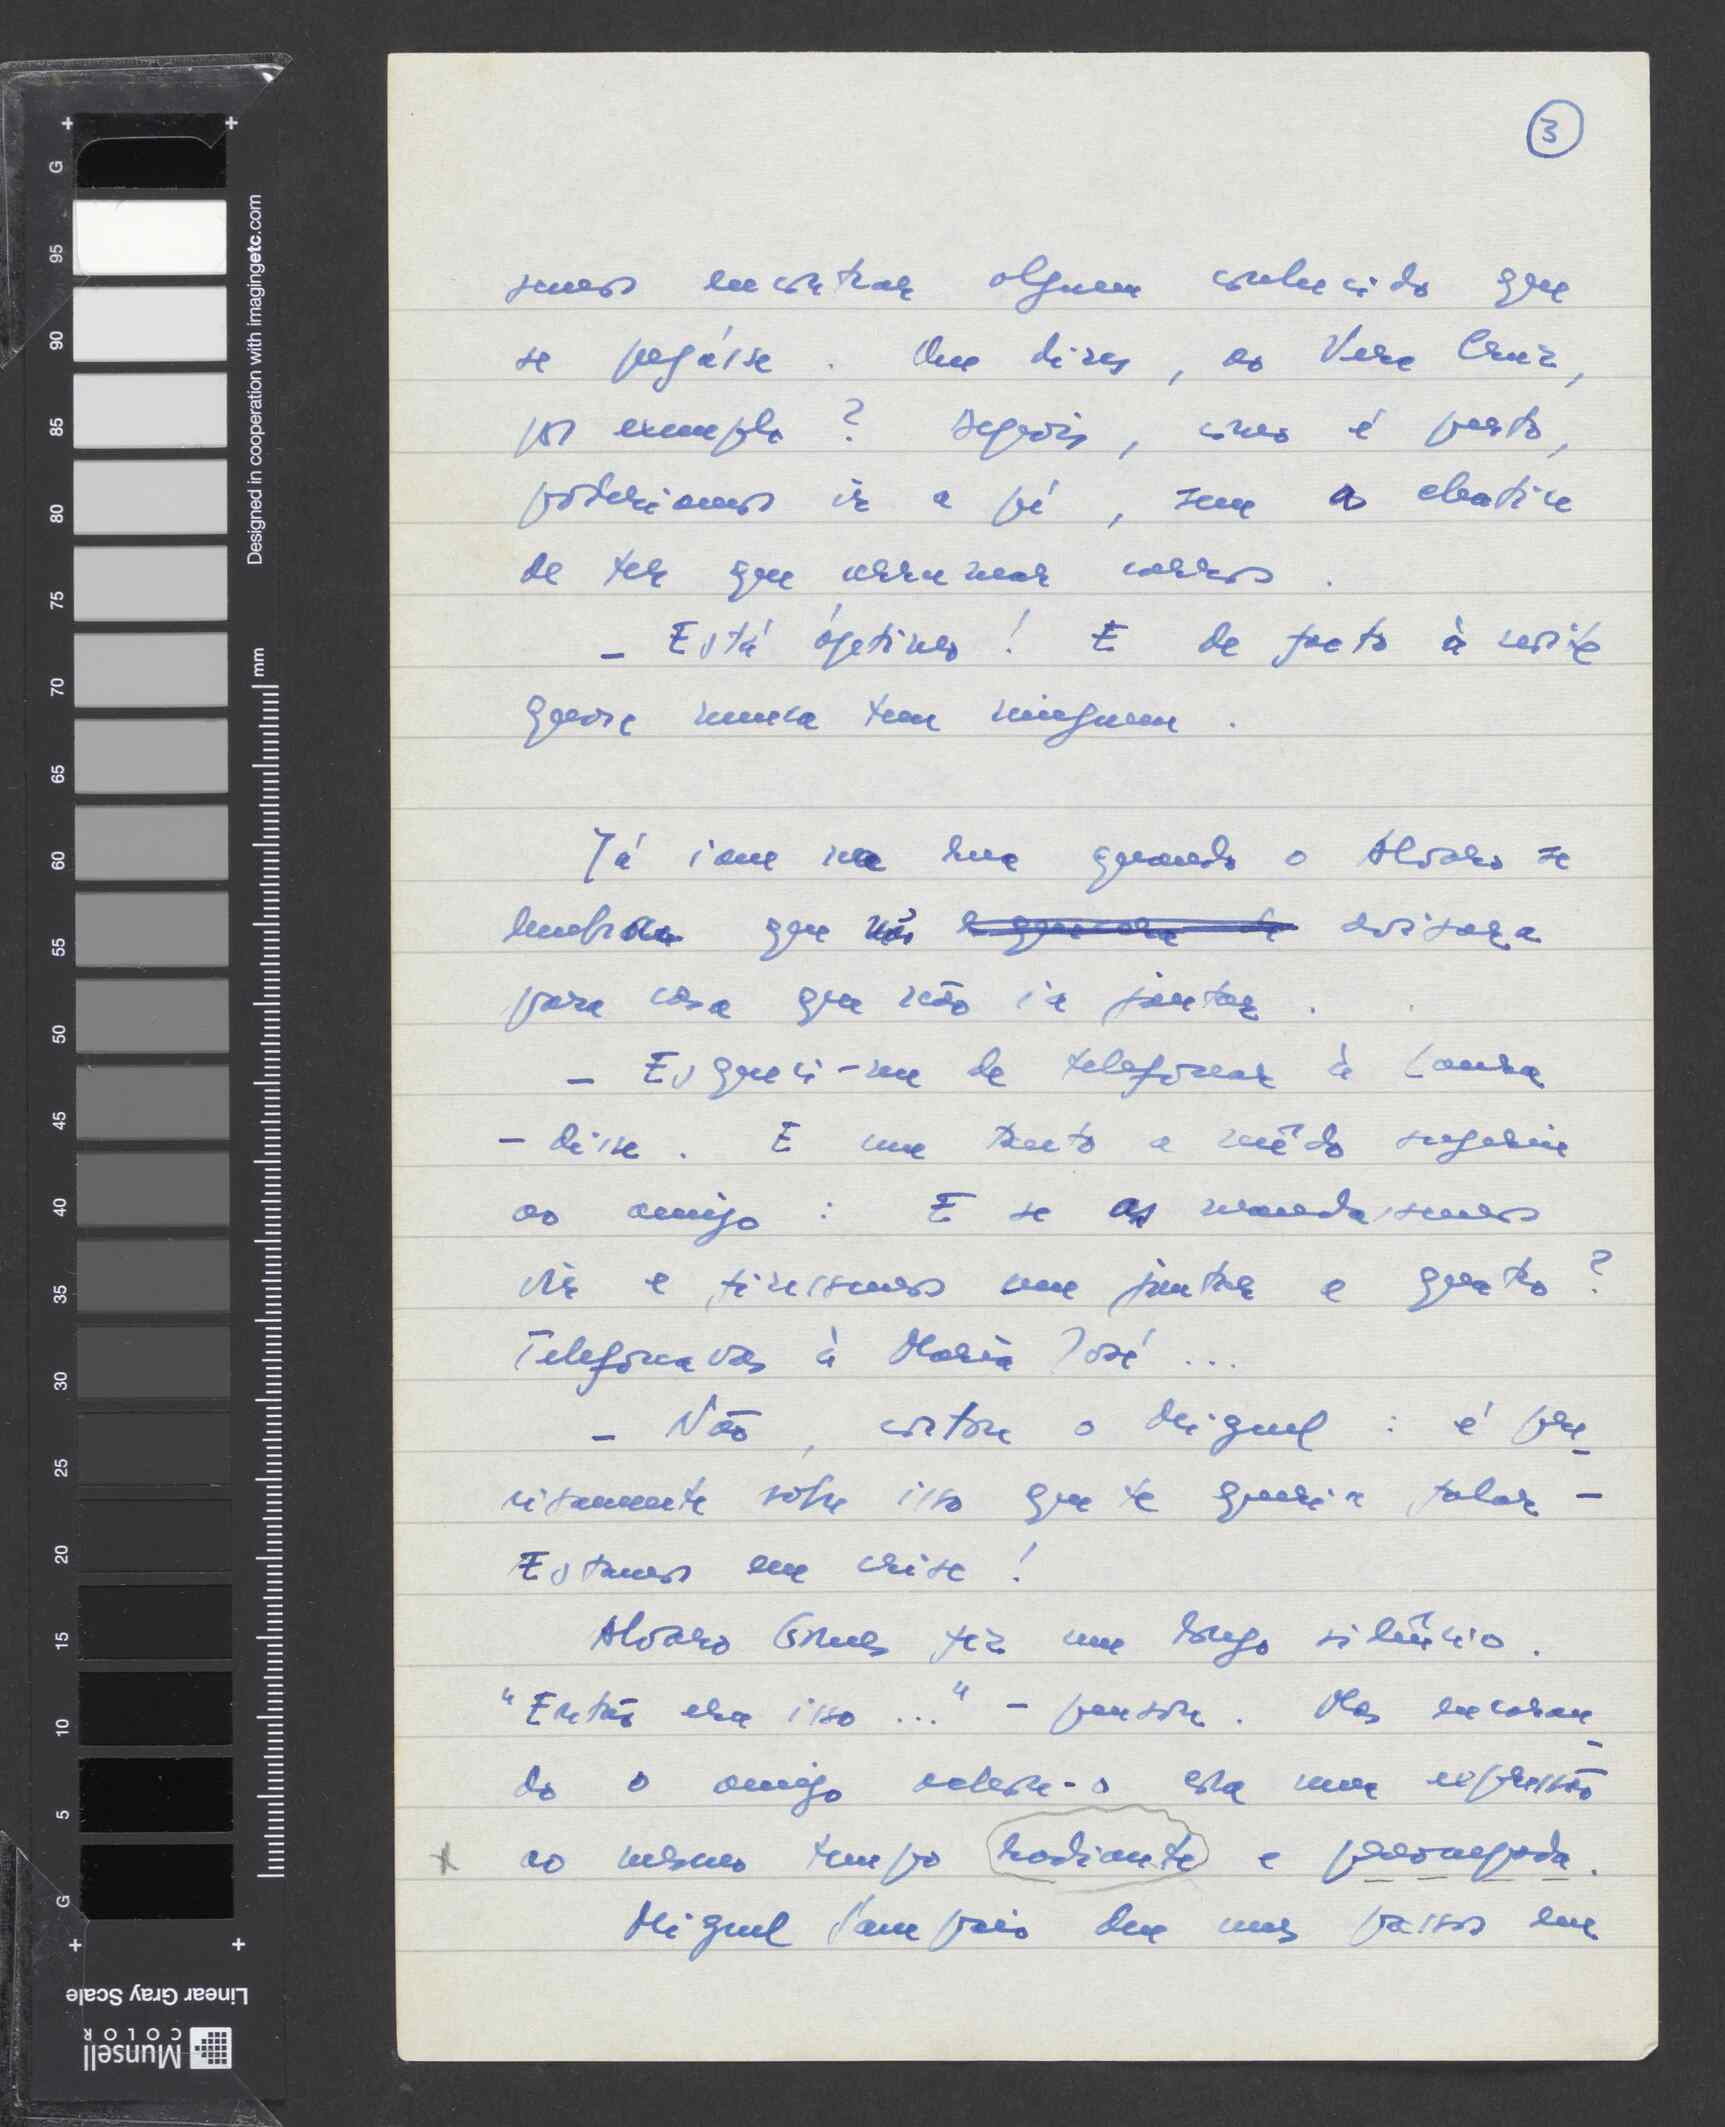 3
semos encontrar alguem conhecido que
se pegásse. Que dizes, ao Vera Cruz,
por exemplo? Depois, como é perto,
poderiamos ir a pé, sem a chatice
de ter que arrumar carros.
– Está óptimo! E de facto à noite
quase nunca tem ninguem.
Já iam na rua quando o Alvaro se
lembrou que não avisara
para casa que não ia jantar.
– Esqueci-me de telefonar à Laura
– disse. E um tanto a mêdo sugeriu
ao amigo: E se as mandassemos
vir e fizessemos um jantar a quatro?
Telefonavas à Maria José ...
– Não, cortou o Miguel: é pre-
cisamente sôbre isso que te queria falar –
Estamos em crise!
Alvaro Gomes fez um longo silêncio.
"Então era isso ..." – pensou. Mas encaran-
do o amigo achou-o com uma expressão
x ao mesmo tempo radiante e preocupada.
Miguel Sampaio deu uns passos em
G 95 90 85 80 75 70 65 60 55 50 45 40 35 30 25 20 15 10 5 G
Designed in cooperation with imagingetc.com
mm
Linear Gray Scale
Munsell
COLOR